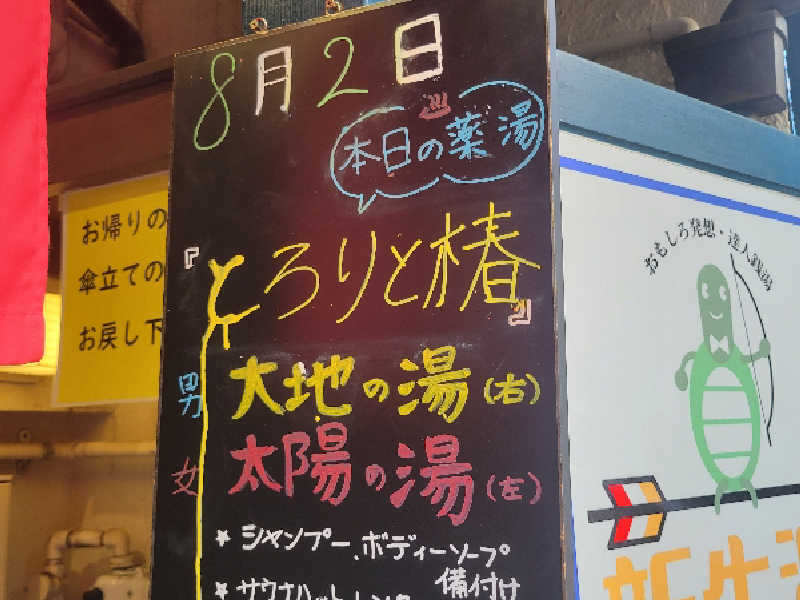 8月2日
本日の薬湯
『とろりと椿』
男 大地の湯(右)
女 太陽の湯(左)
★ シャンプー、ボディーソープ
備付け
★ サウナハット
お帰りの
傘立ての
お戻し下
おもしろ発想・達人銭湯